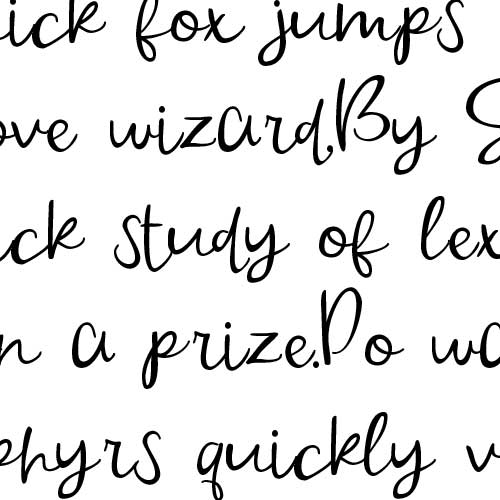 ick fox jumps
ove wizard.By S
ick study of lex
n a prize.Do wa
phyrs quickly v